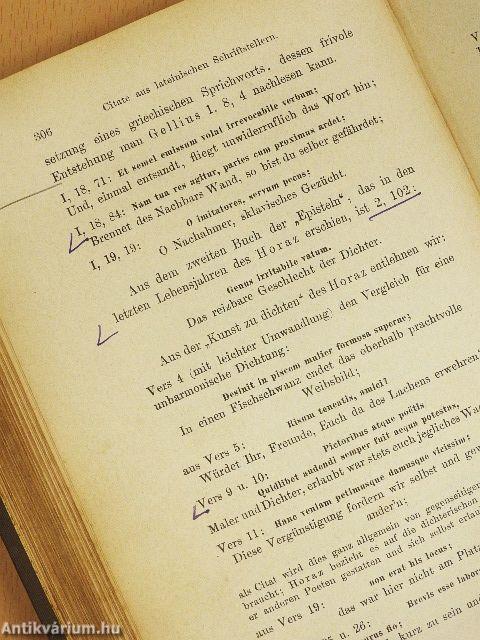 306
Citate aus lateinischen Schriftstellern.
setzung eines griechischen Sprichworts, dessen frivole
Entstehung man Gellius 1. 8, 4 nachlesen kann.
I, 18, 71: Et semel emissum volat irrevocabile verbum;
Und, einmal entsandt, fliegt unwiderruflich das Wort hin;
I, 18, 84: Nam tua res agitur, paries cum proximus ardet;
Brennet des Nachbars Wand, so bist du selber gefährdet;
I, 19, 19: O imitatores, servum pecus;
O Nachahmer, sklavisches Gezücht.
Aus dem zweiten Buch der „Episteln“, das in den
letzten Lebensjahren des Horaz erschien, ist 2, 102:
Genus irritabile vatum.
Das reizbare Geschlecht der Dichter.
Aus der „Kunst zu dichten“ des Horaz entlehnen wir:
Vers 4 (mit leichter Umwandlung) den Vergleich für eine
unharmonische Dichtung:
Desinit in piscem mulier formosa superne;
In einen Fischschwanz endet das oberhalb prachtvolle
Weibsbild;
aus Vers 5: Risum teneatis, amici?
Würdet Ihr, Freunde, Euch da des Lachens erwehren
Vers 9 u. 10: Pictoribus atque poëtis
Quidlibet audendi semper fuit aequa potestas,
Maler und Dichter, erlaubt war stets euch jegliches
Vers 11: Hanc veniam petimusque damusque vicissim;
Diese Vergünstigung fordern wir selbst und
ander'n;
als Citat wird dies ganz allgemein von gegenseitigen
braucht; Horaz bezieht es auf die dichterischen
er anderen Poeten gestatten und sich selbst
aus Vers 19: non erat his locus;
das war hier nicht am Platz
25 u. 26: Brevis esse
kurz zu sein und
Antikvárium.hu